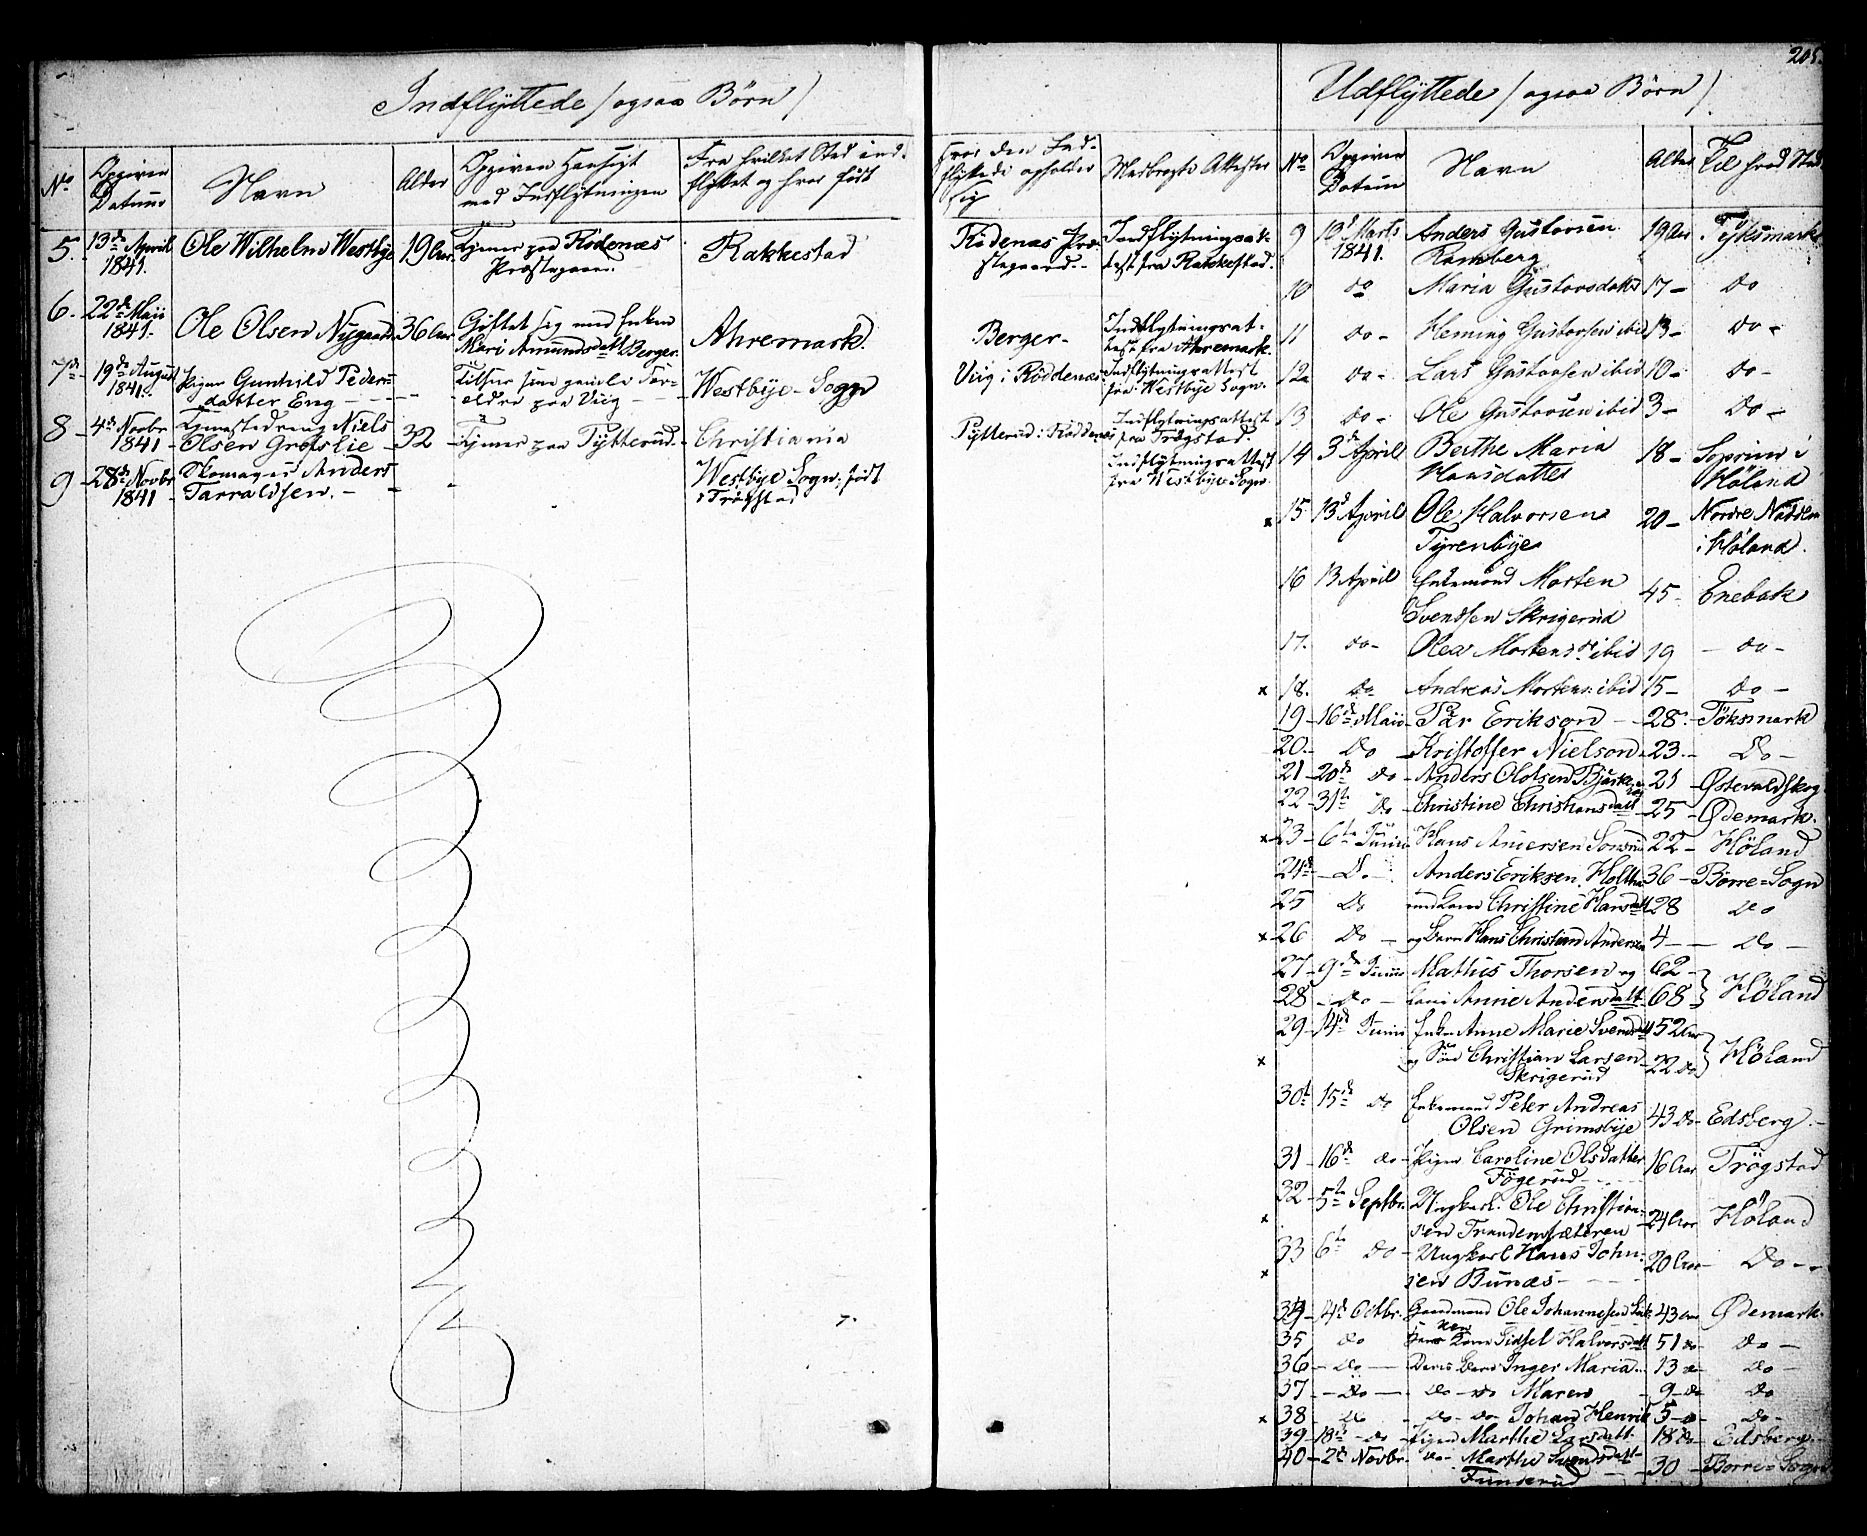 205.
Indflyttede / ogsaa Børn /
No
Opgiven Datum
Navn
Alder
Opgiven Hensigt med Indflytningen
Fra hvilket Sted indflyttet og hvor født
Hvor den Indflyttede opholder sig
Medbragte Attester
5. 13de April 1841. Ole Wilhelm Westbye 19 Aar. Tjener paa Rödenæs Præstegaard. Rakkestad Rödenæs Præstegaard. Indflytningsattest fra Rakkestad.
6. 22de Maii 1841. Ole Olsen Nygaard 36 Aar Giftet sig med Enken Mari Amundsdatt Berger. Ahremark. Berger Indflytningsattest fra Ahremark.
7de 19de August 1841. Pigen Gunhild Pedersdatter Eng Tilsyn sine gamle Forældre paa Viig Westbye-Sogn Viig i Röddenæs Indflytningsattest fra Westbye Sogn.
8 4de Novbr 1841 Tjenestedreng Niels Olsen Grofslie 32 Tjener paa Tytterud. Christiania Tytterud i Röddenæs Indflytningsattest fra Trögstad.
9 28de Novbr 1841 Skomager Anders Tarraldsen. Westbye Sogn. født i Trögstad Indflytningsattest fra Westbye Sogn.
Udflyttede / ogsaa Børn /
No
Opgiven Datum
Navn
Alder
Til hvad Sted
9 19d Marts 1841. Anders Gustavsen Ramberg 19 Aar Tyksmark
10 do Maria Gustavsdatter 17 do
11 do Heming Gustavsen ibid 13 do
12 do Lars Gustavsen ibid 10 do
13 do Ole Gustavsen ibid 3 do
14 3d April Berthe Maria Hansdatter 18 Soprim i Höland
x 15 13d April Ole Halvorsen Tyrenbye 20 Nordre i Höland.
16 13 April Enkemand Morten Svendsen Skrigerud 45 Enebak
17. do Olea Mortensd. ibid 19 do
x 18. do Andreas Mortens. ibid 15 do
19 16de Maii Pär Erikson 28. Töksmark
20. Do Kristoffer Nielson 23. Do
21 20de do Anders Olofsen 21 Østevaldskog
22 31te Do Christine Christiansdatt 25 Ødemark.
x 23 6te Junii Hans Andersen 22 Höland
24de Do Anders Eriksen 36 Borre=Sogn
25 Do med Kone Christine Hansdatt 28 do
x 26 Do og Barn Hans Christian Andersen 4 Do
27 9de Junii Mathis Thorsen og 62
28 Do Kone Anne Andersdatt 68 Höland
29 14de Junii Enken Anne Marie Svendsdatt 52 Aar
x og Søn Christian Larsen Skrigerud 22 Do Höland
30te 15de do Enkemand Peter Andreas Olsen Grimsbye 43 do Edsberg.
31 16de do Pigen Caroline Olsdatter Fögerud 16 Aar Trögstad
x 32 5te Septbr. Ungkarl. Ole Christiansen 24 Aar Höland
x 33 6te Do Ungkarl Hans Johnsen Bunæs 20 Aar Do
34 4de Octbr. Gaardmand Ole Johannesen 43 Aar Ødemark.
35 do Kone Sidsel Halvorsdatt 51 do do
36 do Deres Barn Inger Maria 13 do do
37 do do do Maren 9 do do
x 38 do do do Johan Henrik 5 do do
39 18de do Pigen Marthe Larsdatt. 18 Do Edsberg
40 2de Novbr. do Marthe Svendsdatt Funderud 30 Borre=Sogn